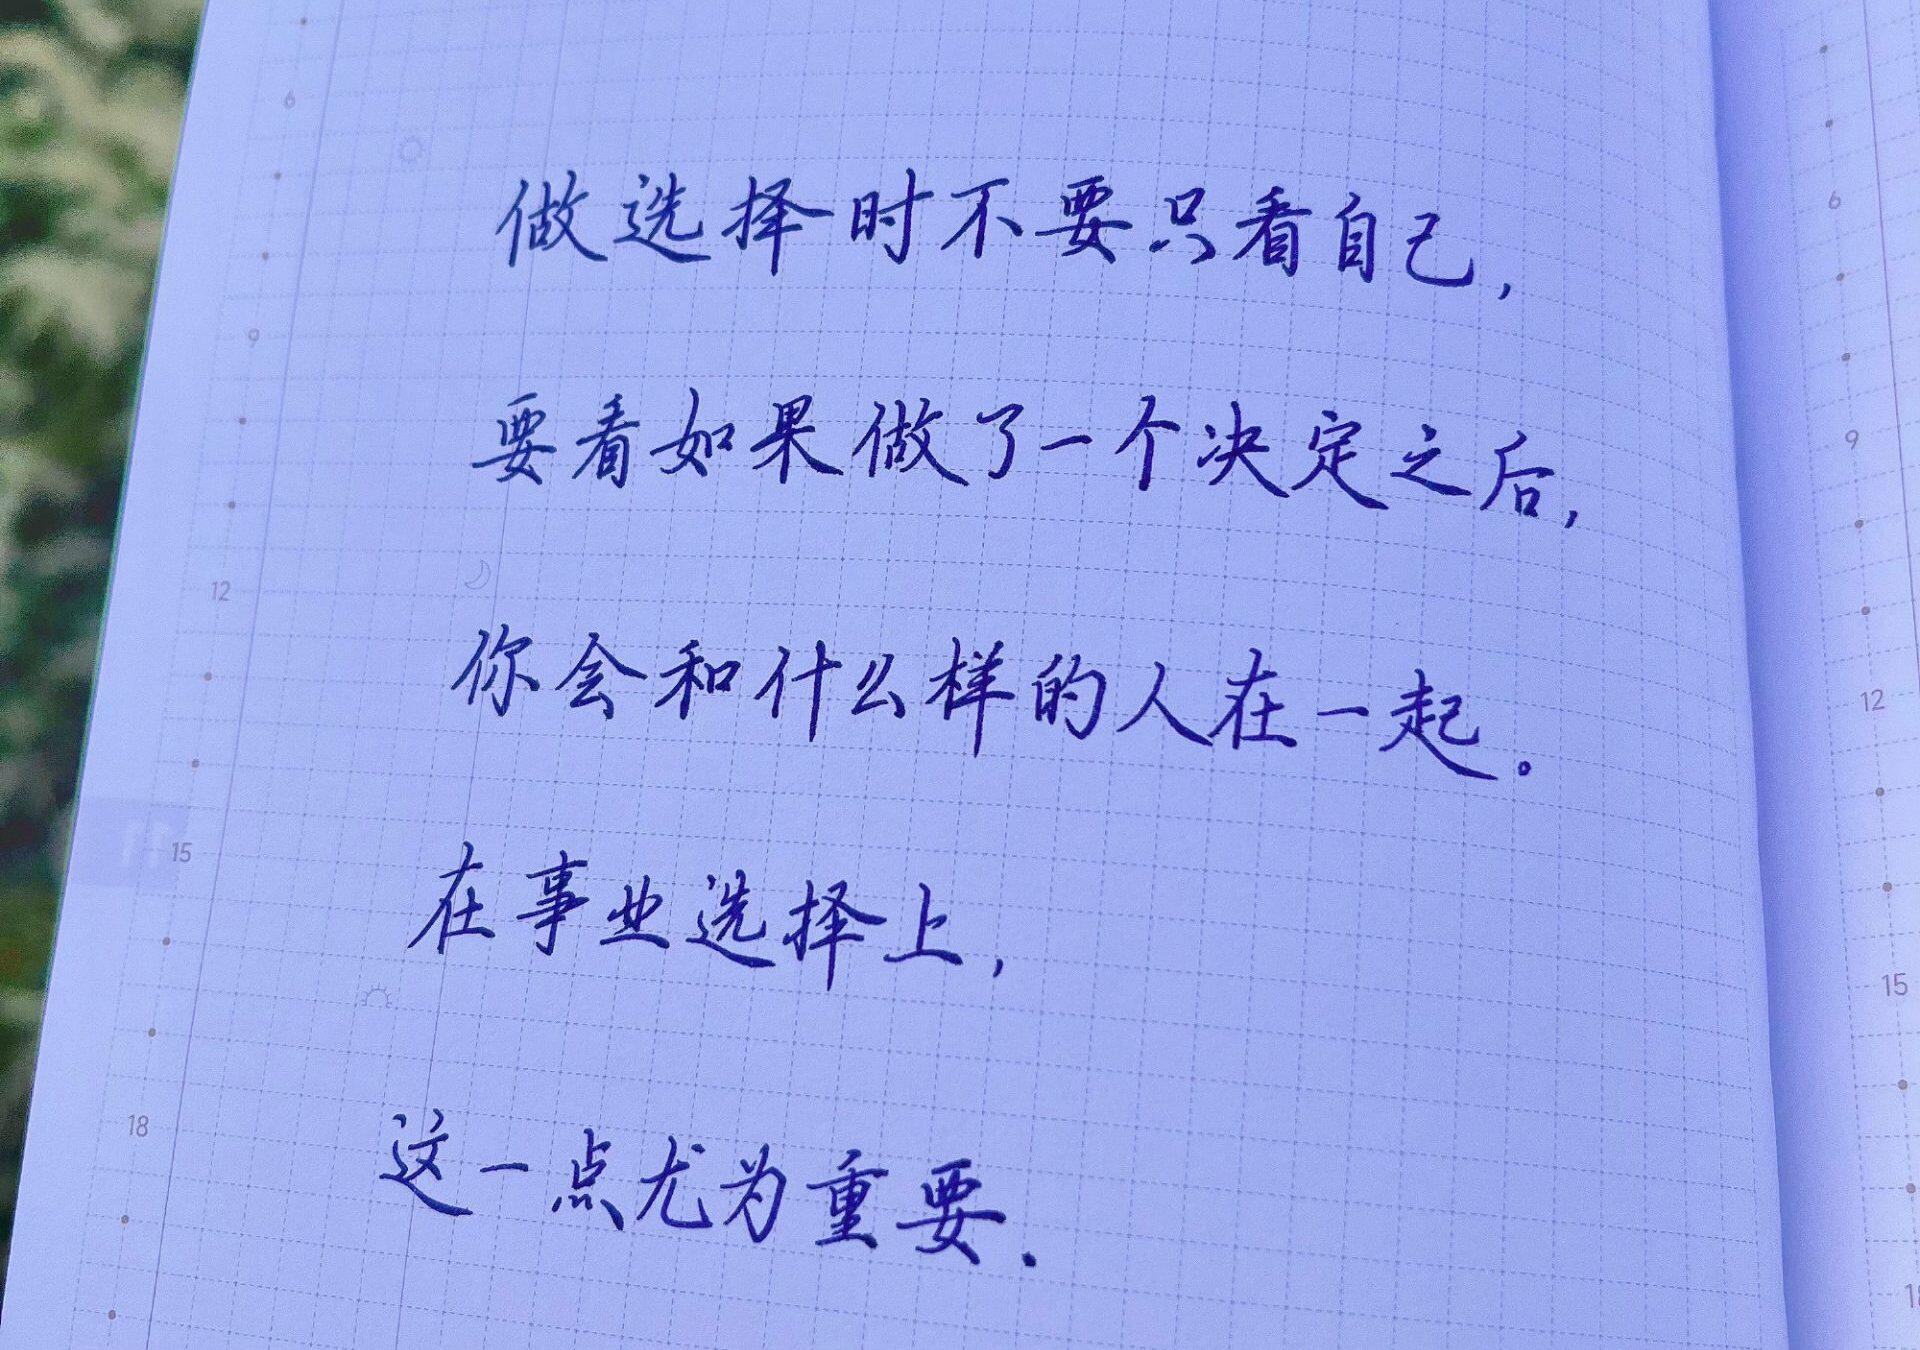 做选择时不要只看自己,
要看如果做了一个决定之后,
你会和什么样的人在一起.
在事业选择上,
这一点尤为重要.
6
9
12
15
18
6
9
12
15